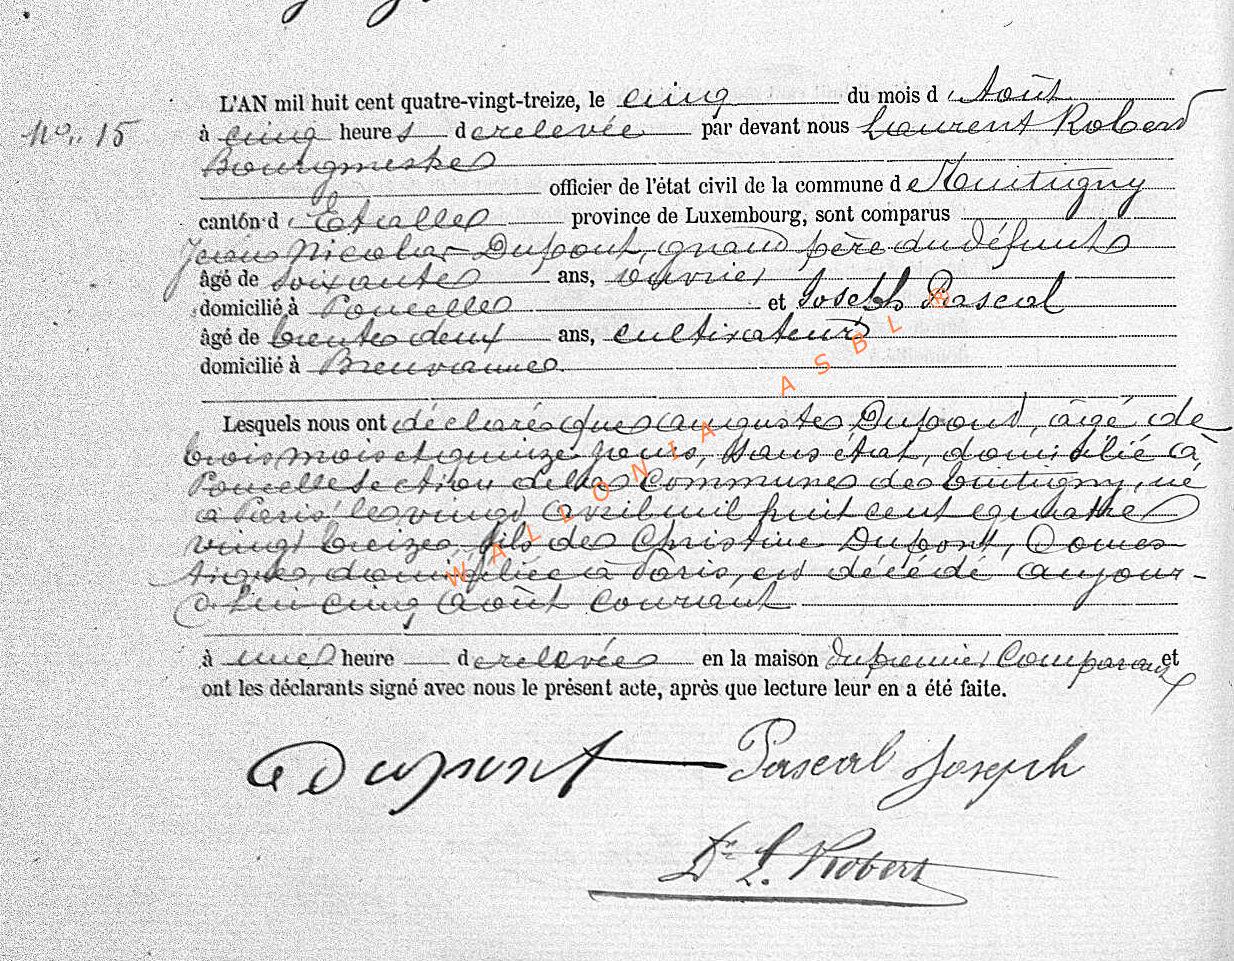 L'AN mil huit cent quatre-vingt-treize, le cinq du mois d'Août
No. 15
à cinq heures de relevée par devant nous Laurent Robert
Bourgmestre
officier de l'état civil de la commune de Tintigny
canton d'Etalle province de Luxembourg, sont comparus
Jean Nicolas Dupont, grand père du défunt
âgé de soixante ans, ouvrier
domicilié à Poncelle et Joseph Pascal
âgé de trente deux ans, cultivateur
domicilié à Breuvanne
Lesquels nous ont déclaré que Auguste Dupont, âgé de
trois mois et quinze jours, sans état, domicilié à
Poncelle section de la Commune de Tintigny, né
à Paris le vingt avril mil huit cent quatre
vingt treize, fils de Christine Dupont, Domes-
tique, domiciliée à Paris, est décédé aujour-
d'hui cinq Août courant
à une heure de relevée en la maison du premier comparant et
ont les déclarants signé avec nous le présent acte, après que lecture leur en a été faite.
Dupont Pascal Joseph
Dr L. Robert
WALLONIA ASBL